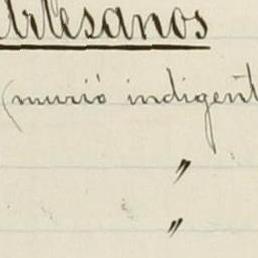 Artesanos
(murió indigent
"
"